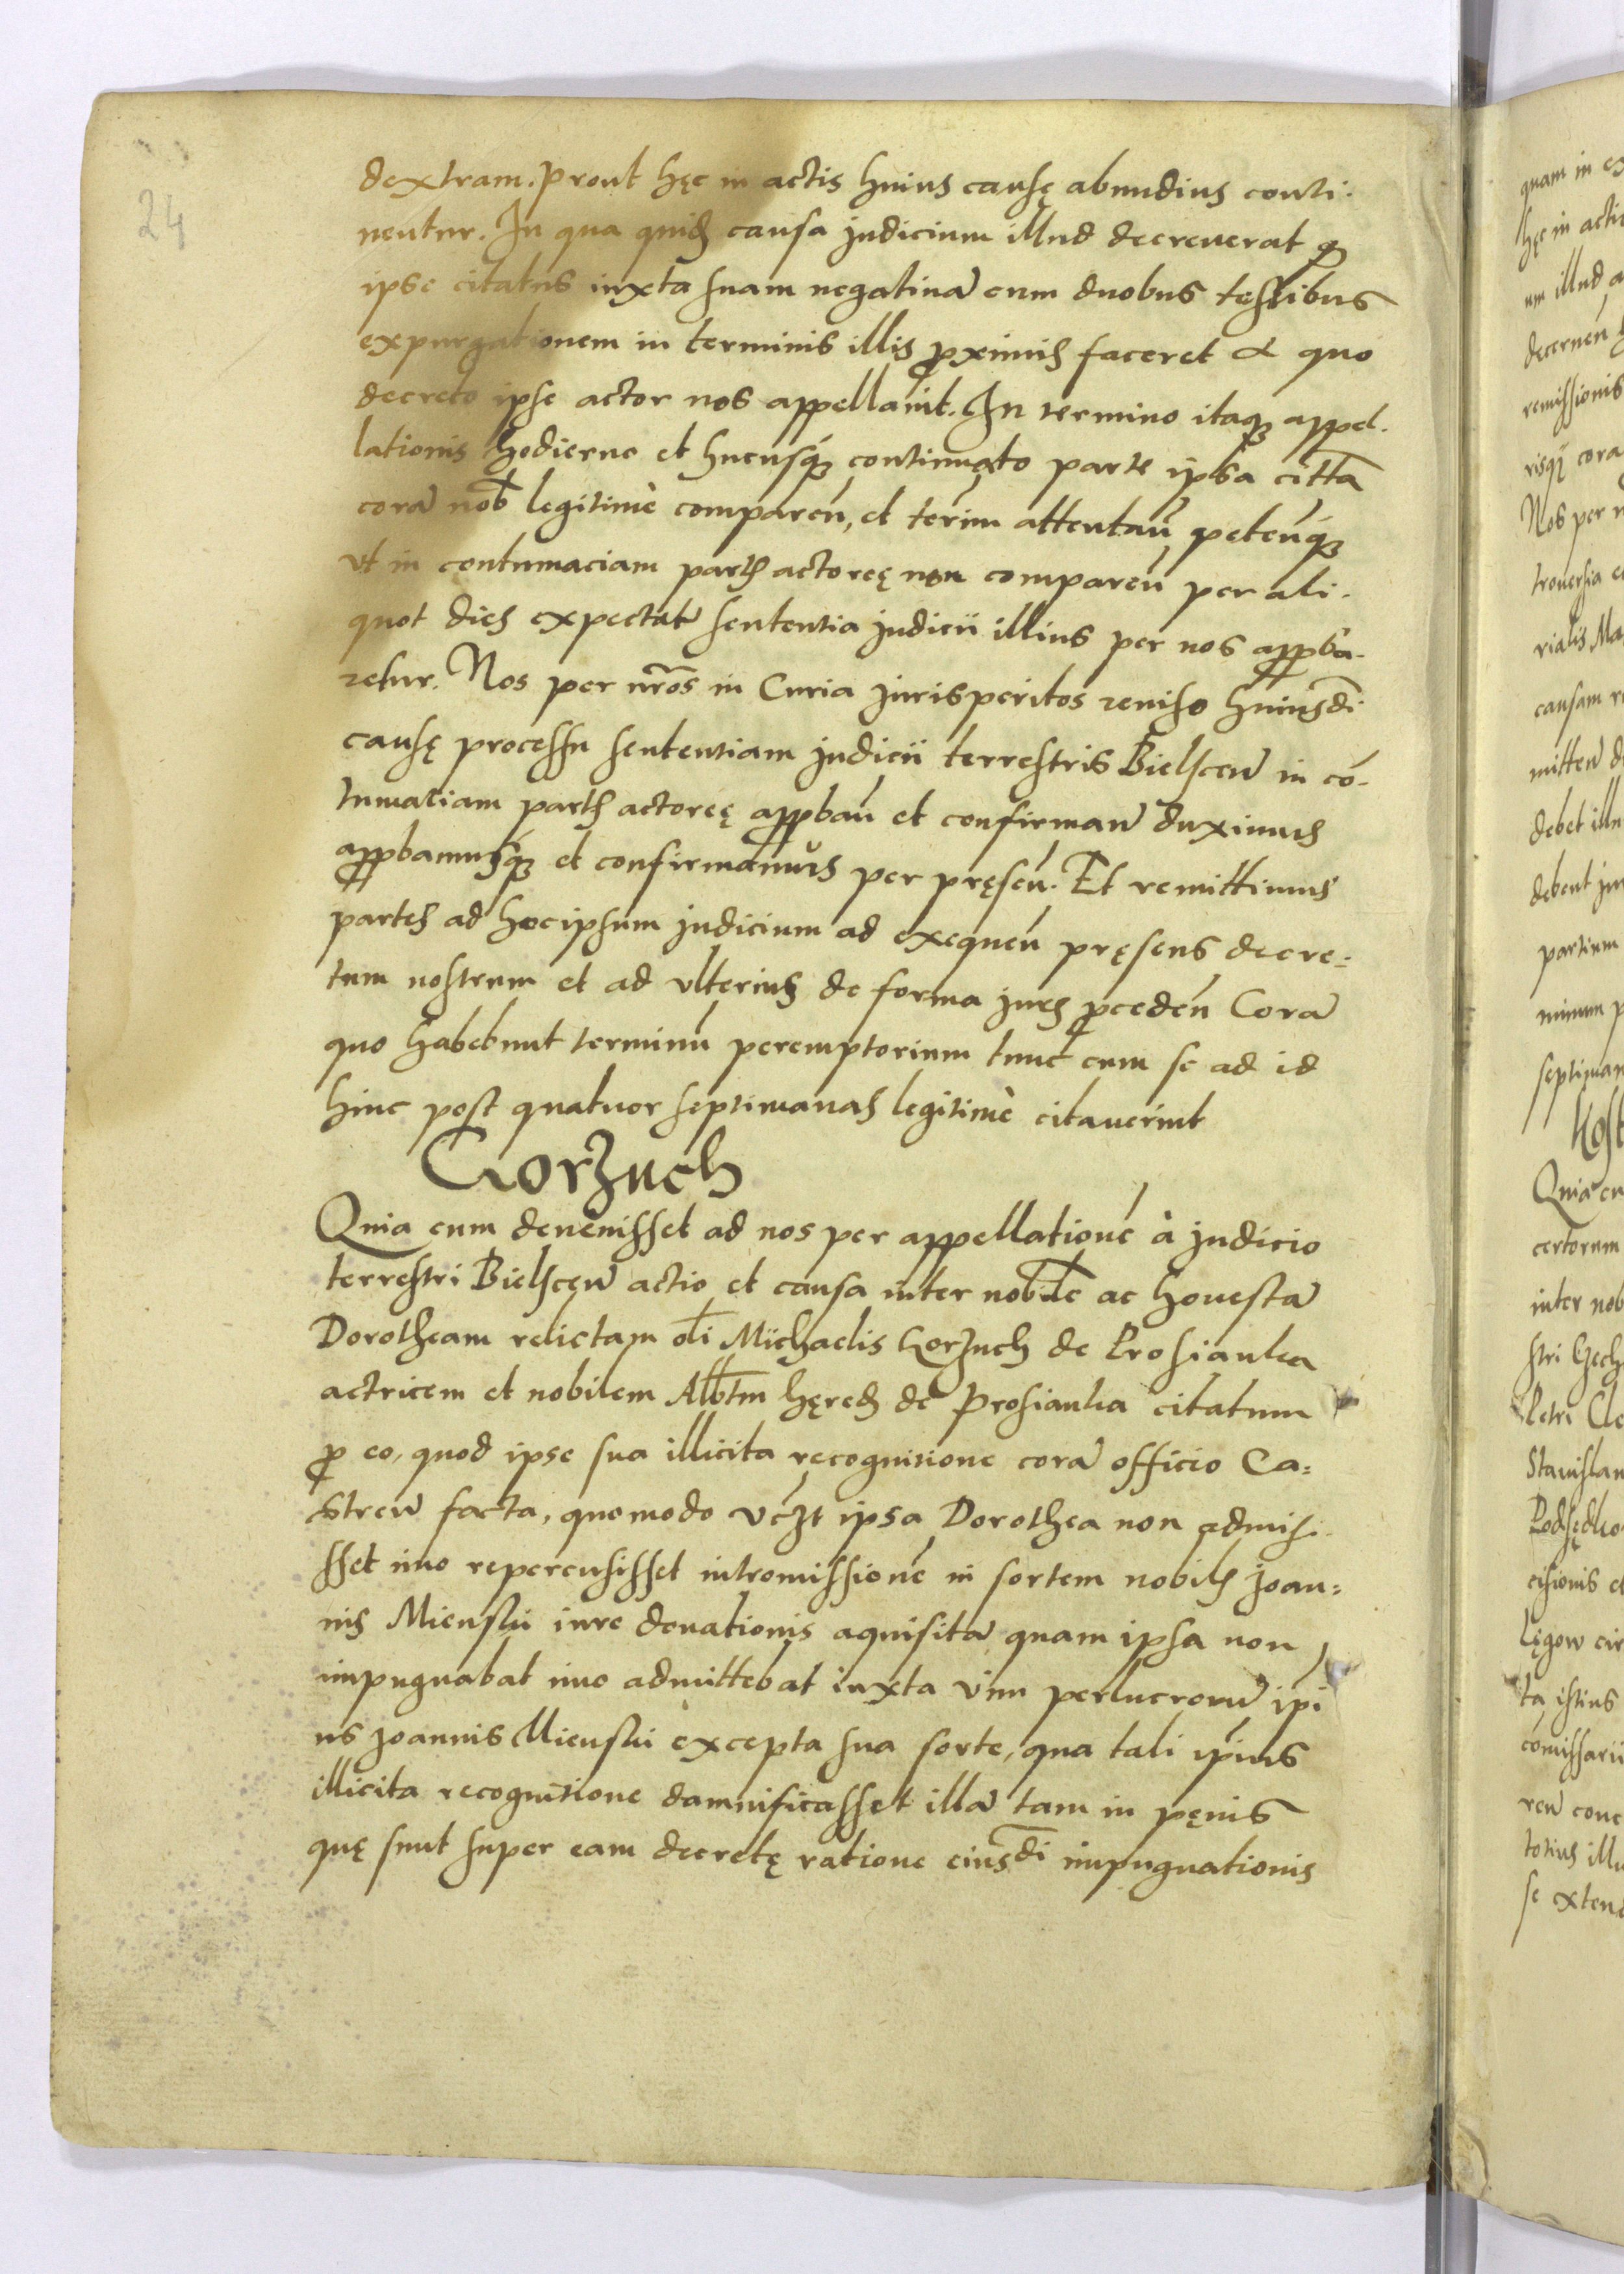 24
dextram. Prout hęc in actis huius causę abundius conti-
nentur. In qua quid causa judicium illud decreverat q
ipse citatus iuxta suam negativā cum duobus testibus
expurgationem in terminis illis proximis faceret A quo
decreto ipse actor nos appellavit. In termino itaq appel-
lationis hodierne et hucusq continuato parte ipsa citta
corā nob legitime comparen, et termin attentan petenq
Ut in contumaciam partis actoreę non comparen per ali-
quot dies expectat sententia judicii illius per nos approba-
retur. Nos per nros in Curia jurisperitos reviso huiusdi
causę processu sententiam judicii terrestris Bielscen in cō-
tumaciam partis actoreę approban et confirman duximus
approbamusq et confirmamus per pręsen. Et remittimus
partes ad hoc ipsum judicium ad exequen pręsens decre-
tum nostrum et ad ulterius de forma juris proceden Corā
quo habebunt terminū peremptorium tunc cum se ad id
hinc post quatuor septimanas legitime citaverint
Corzuch
Quia cum devenisset ad nos per appellationē à judicio
terrestri Bielscen actio et causa inter nobile ac honestā
Dorotheam relictam oli Michaelis Korzuch de Prosianka
actricem et nobilem Albtm hęred de Prosianka citatum
pro eo, quod ipse sua illicita recognitione corā officio Ca-
stren facta, quomodo vczt ipsa Dorothea non admisi-
sset imo repercusisset intromissionē in sortem nobilis Joan-
nis Mienski iure donationis aquisitā quam ipsa non
impugnabat imo admittebat iuxta vim perlucrorū ipi
us Joannis Mienski excepta sua sorte, qua tali ipius
illicita recognitione damnificasset illā tam in pęnis
quę sunt super eam decretę ratione eiusdi impugnationis
quam in
hęc in actis
um illud
decernen
remissionis
corā
Nos per
troversia
rialis
causam
mitten
debet
debent
partium
minum
septiman
Kost
Quia
certorum
inter nob
stri
Petri
Stanislau
cisionis
Lęgow
ta istius
cōmissarii
ren
totius
se exten